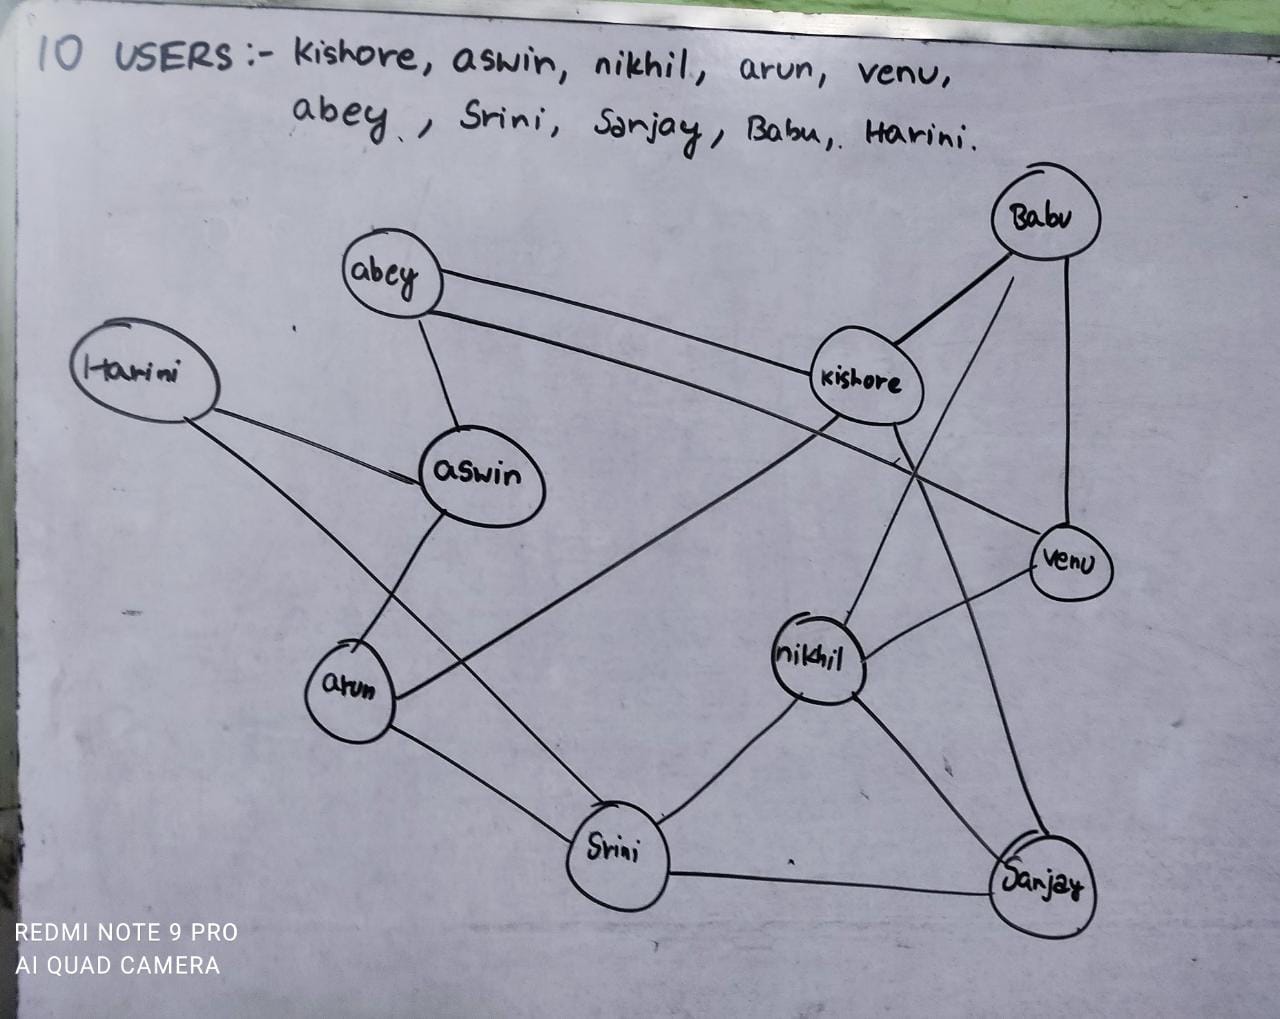 10 USERS :- Kishore, aswin, nikhil, arun, venu,
abey, Srini, Sanjay, Babu, Harini.
Babu
abey
Harini
Kishore
aswin
venu
nikhil
arun
Srini
Sanjay
REDMI NOTE 9 PRO
AI QUAD CAMERA